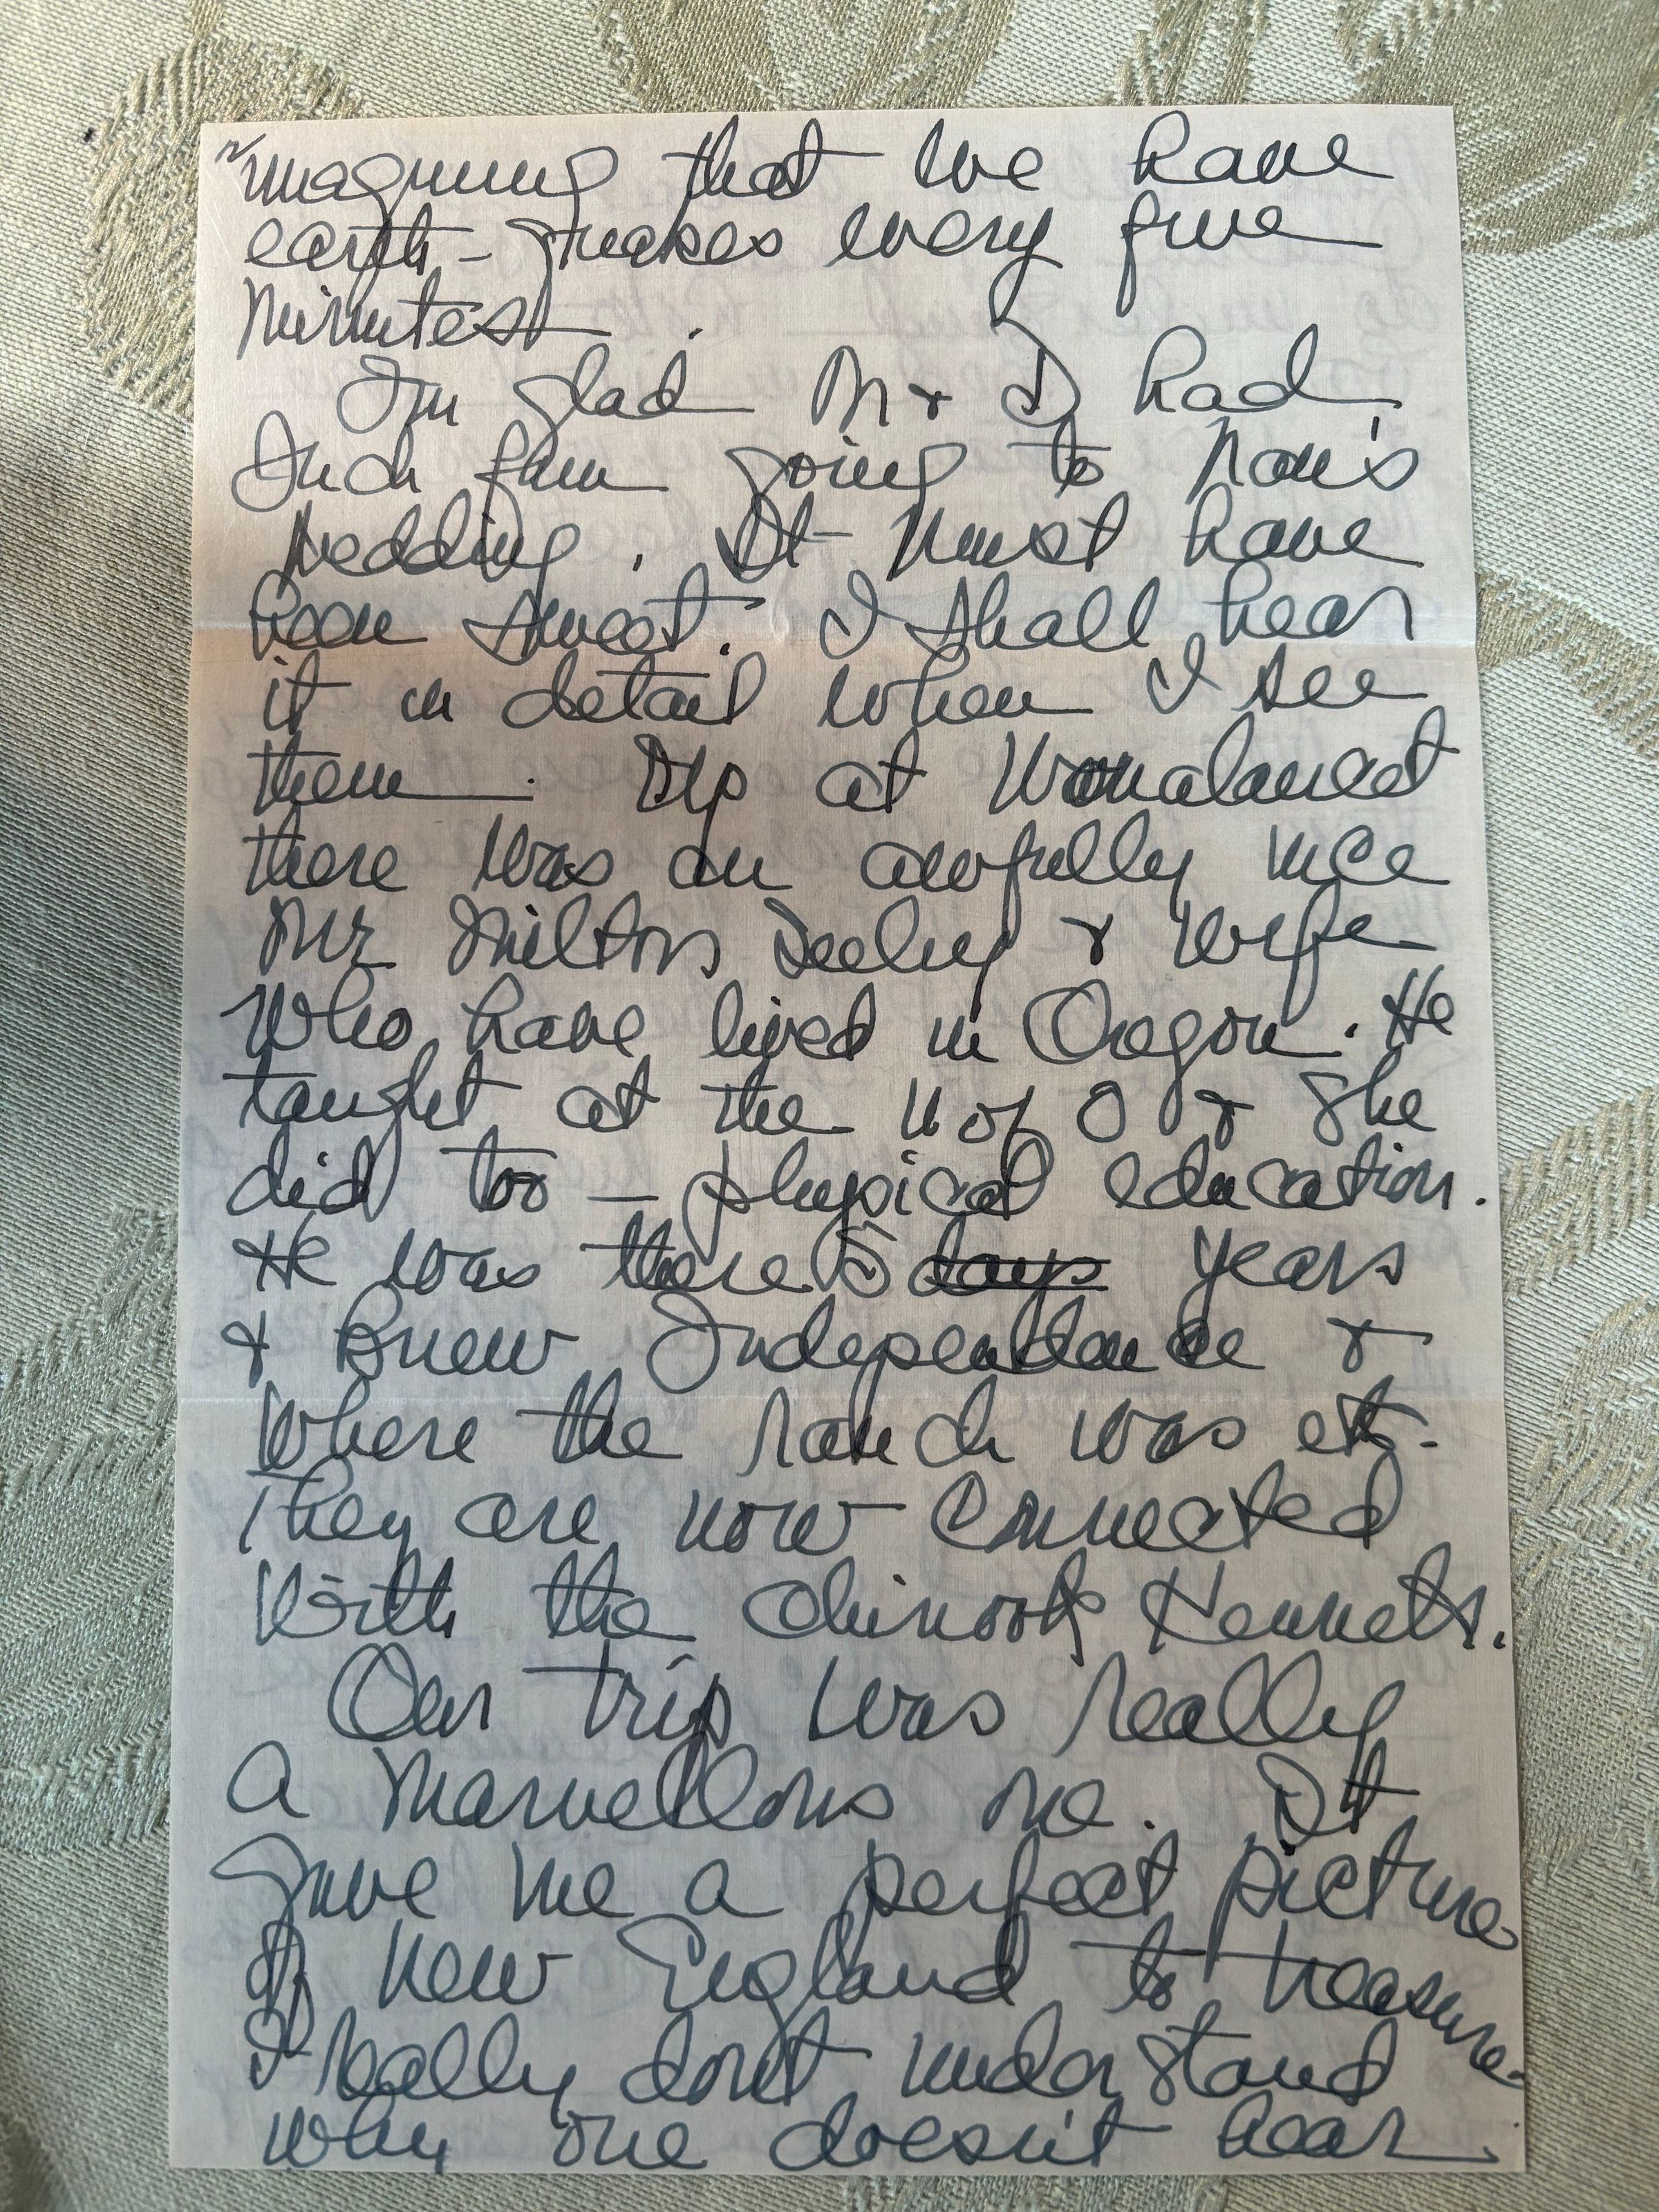 imagining that we have
earth-quakes every five
minutes.
I'm glad M & D had
such fun going to Nan's
wedding. It must have
been sweet. I shall hear
it in detail when I see
them. Up at Wonalancet
there was an awfully nice
Mr Milton Seeley & wife
who have lived in Oregon. He
taught at the U of O & she
did too — physical education.
He was there 5 days years
& knew Independence &
where the ranch was etc.
They are now connected
with the Chinook Kennels.
Our trip was really
a marvellous one. It
gave me a perfect picture
of New England to treasure.
I really don't understand
why one doesn't hear